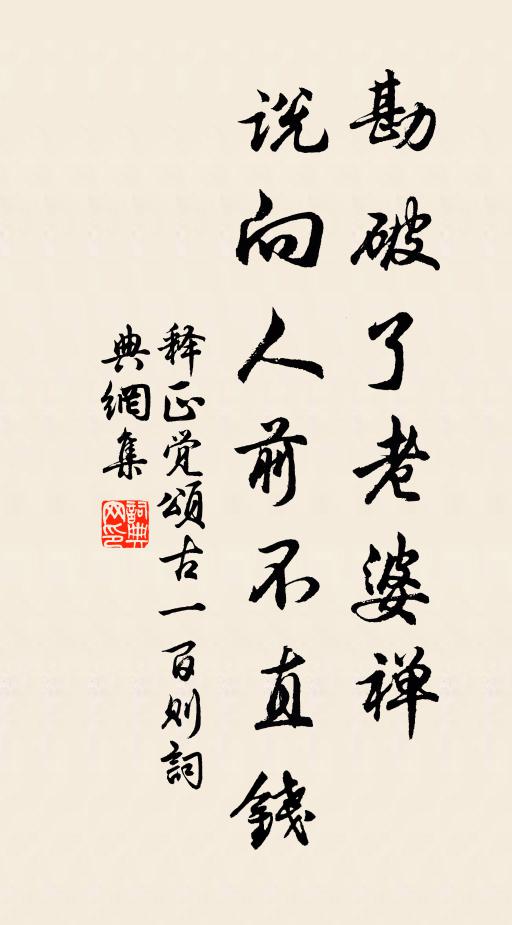 勘破了老婆禅
説向人前不直錢
释正觉頌古一百则詞
典網集
詞典
网印